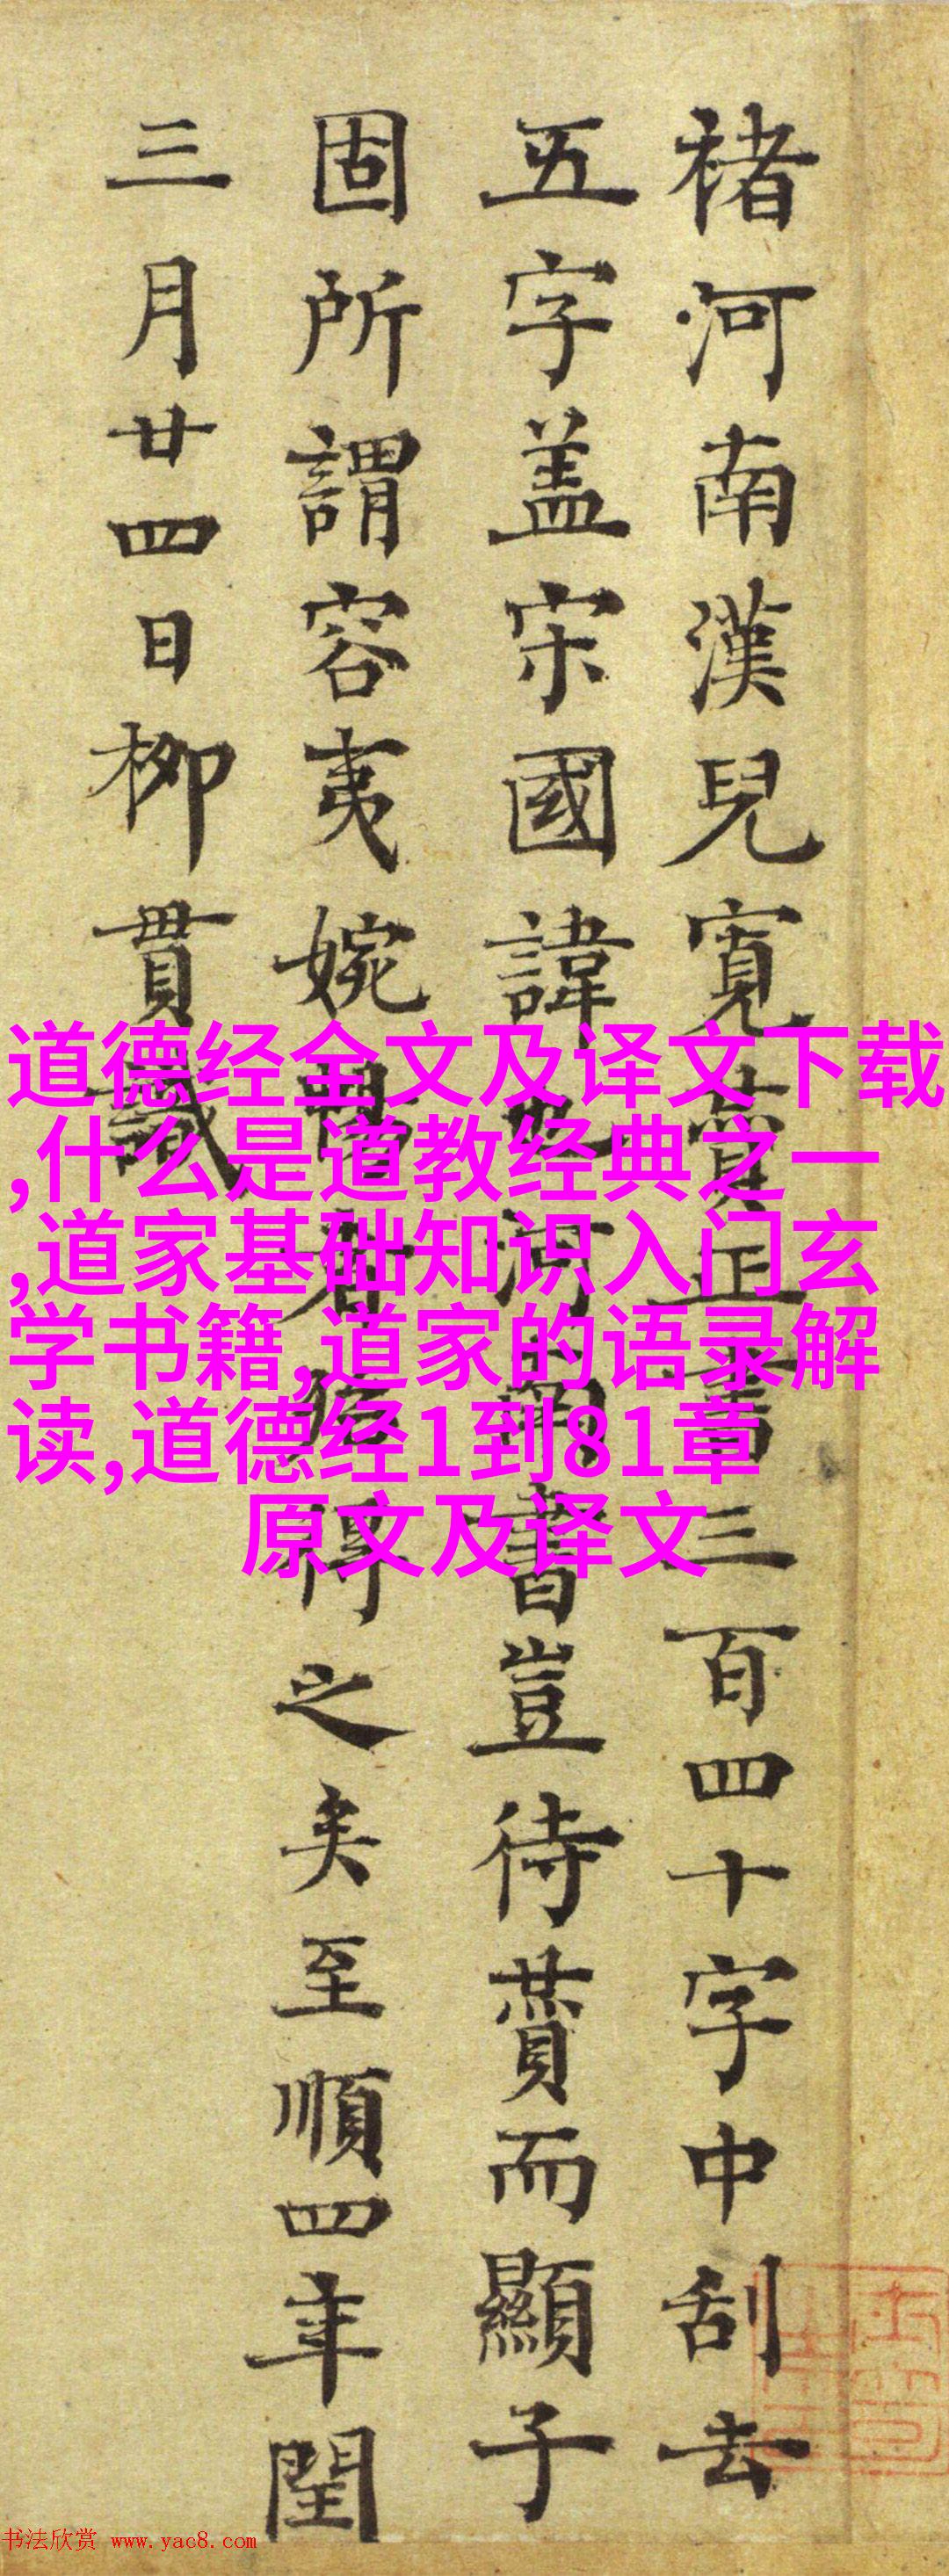 褚河南漢兒寬賛正書三百四十字中刮去
五字盖宋國諱也河南書豈待賛而顯子
固所謂容夷婉得之矣至順四年閏
三月廿四日柳貫識
道德经全文及译文下载
,什么是道教经典之一
,道家基础知识入门玄
学书籍,道家的语录解
读,道德经1到81章
原文及译文
书法欣赏 www.yac8.com